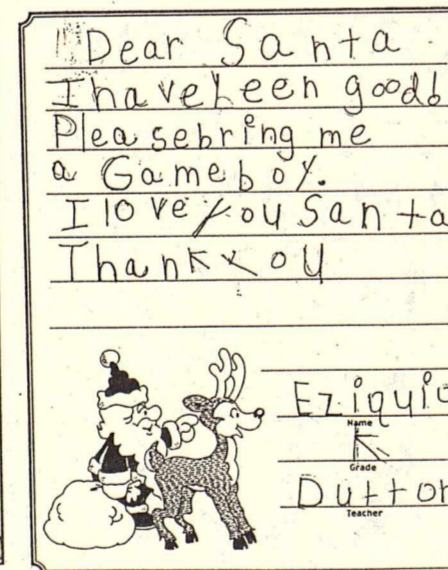 Dear Santa
I have been good!
Please bring me
a Gameboy.
I love you Santa
Thank you
Name
K
Grade
Teacher